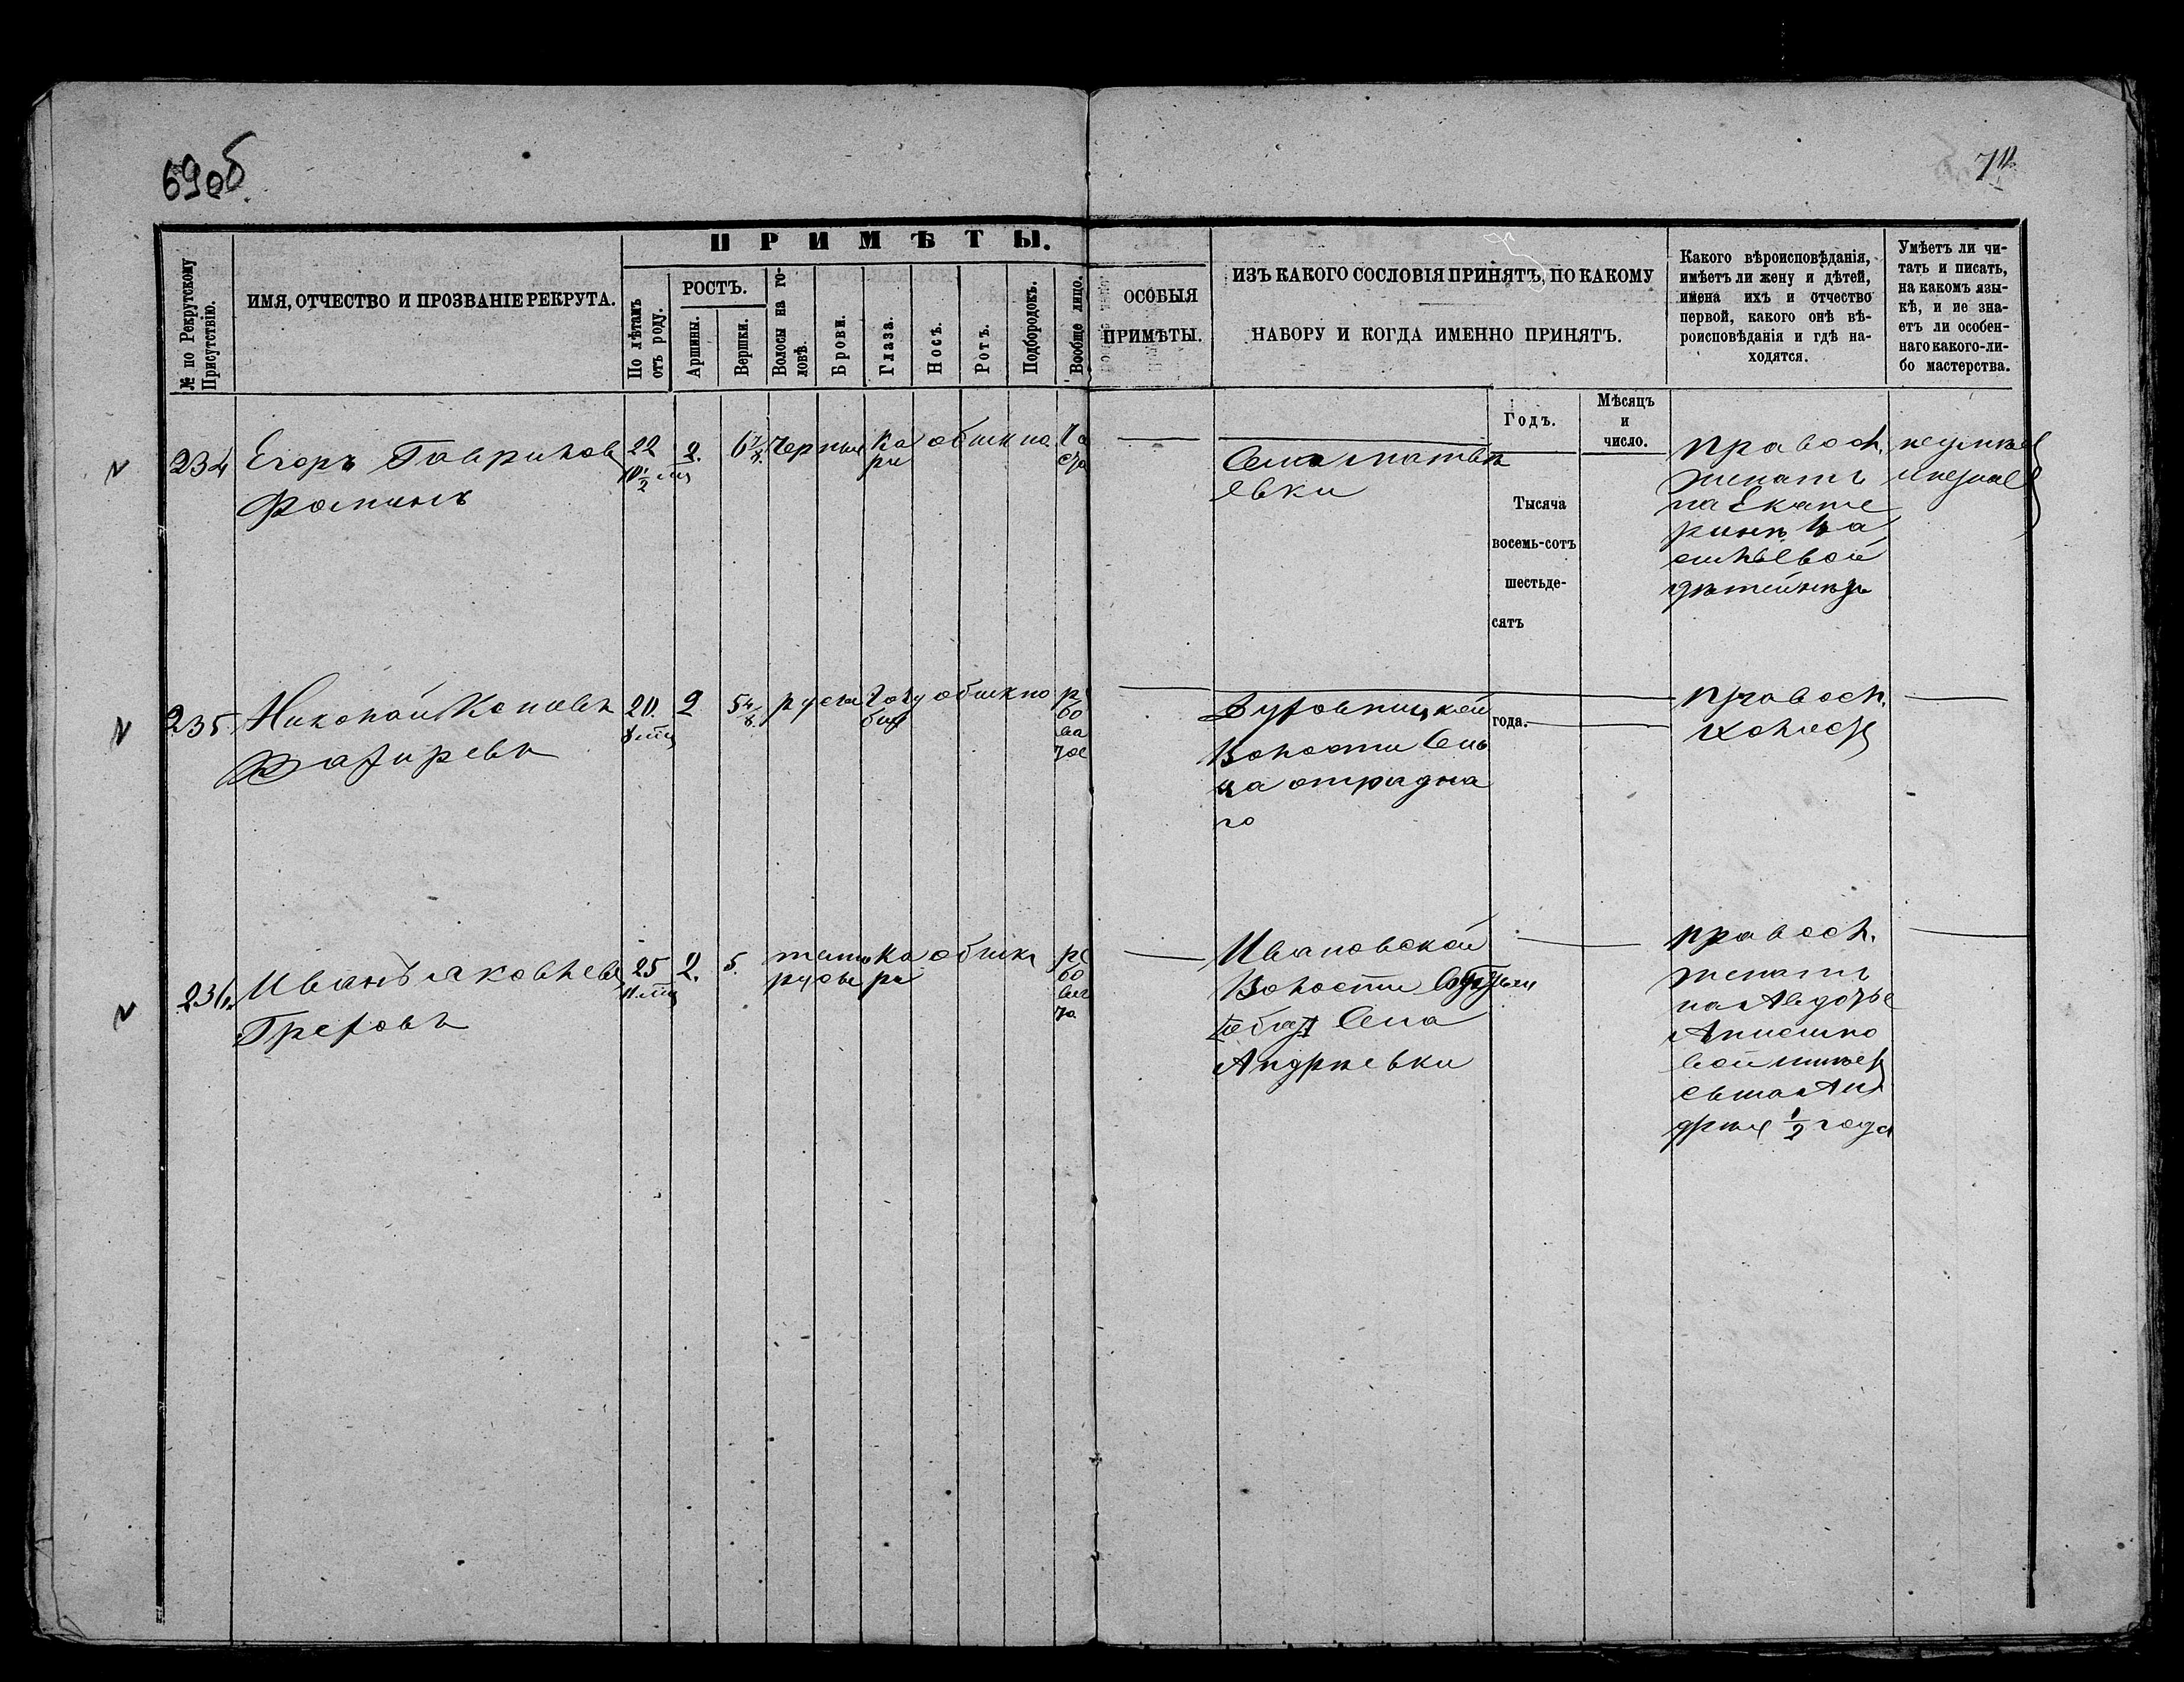 69об.
П Р И М Ѣ Т Ы.
№ по Рекрутскому
Присутствію.
ИМЯ, ОТЧЕСТВО И ПРОЗВАНІЕ РЕКРУТА.
По лѣтамъ
отъ роду.
РОСТЪ.
Аршины.
Вершки.
Волосы на го-
ловѣ.
Брови.
Глаза.
Носъ.
Ротъ.
Подбородокъ.
Вообще лицо.
ОСОБЫЯ
ПРИМѢТЫ.
ИЗЪ КАКОГО СОСЛОВІЯ ПРИНЯТЪ, ПО КАКОМУ
НАБОРУ И КОГДА ИМЕННО ПРИНЯТЪ.
Годъ.
Мѣсяцъ
и
число.
Какого вѣроисповѣданія,
имѣетъ ли жену и дѣтей,
имена ихъ и отчество
первой, какого онѣ вѣ-
роисповѣданія и гдѣ на-
ходятся.
Умѣетъ ли чи-
тать и писать,
на какомъ язы-
кѣ, и не зна-
етъ ли особен-
наго какого-ли-
бо мастерства.
234
Егоръ Гаврилов
Фоминъ
22
2.
черные
ка
ри
обыкно
ча
сто
Села Матвѣ
евки
Тысяча
восемь-сотъ
шестьде-
сятъ
года.
правосл.
женатъ
на Екате
ринѣ Ва
сильевой
дѣтей нѣтъ
неумѣе
235.
Николай
20.
2
5 4/8
русы
голу
бые
обыкно
ря
бо
ва
тое
Волости Сель
ца отрадна
го
правосл.
холост
236
Иванъ Яковлевъ
25
2.
5.
темно
русы
ка
ри
обыкн
ря
бо
ва
то
Ивановской
Волости
Села
Андрѣевки
правосл.
женатъ
на Авдотье
Анисимо
вой имѣет
сына Ан
дрѣя 1/2 года